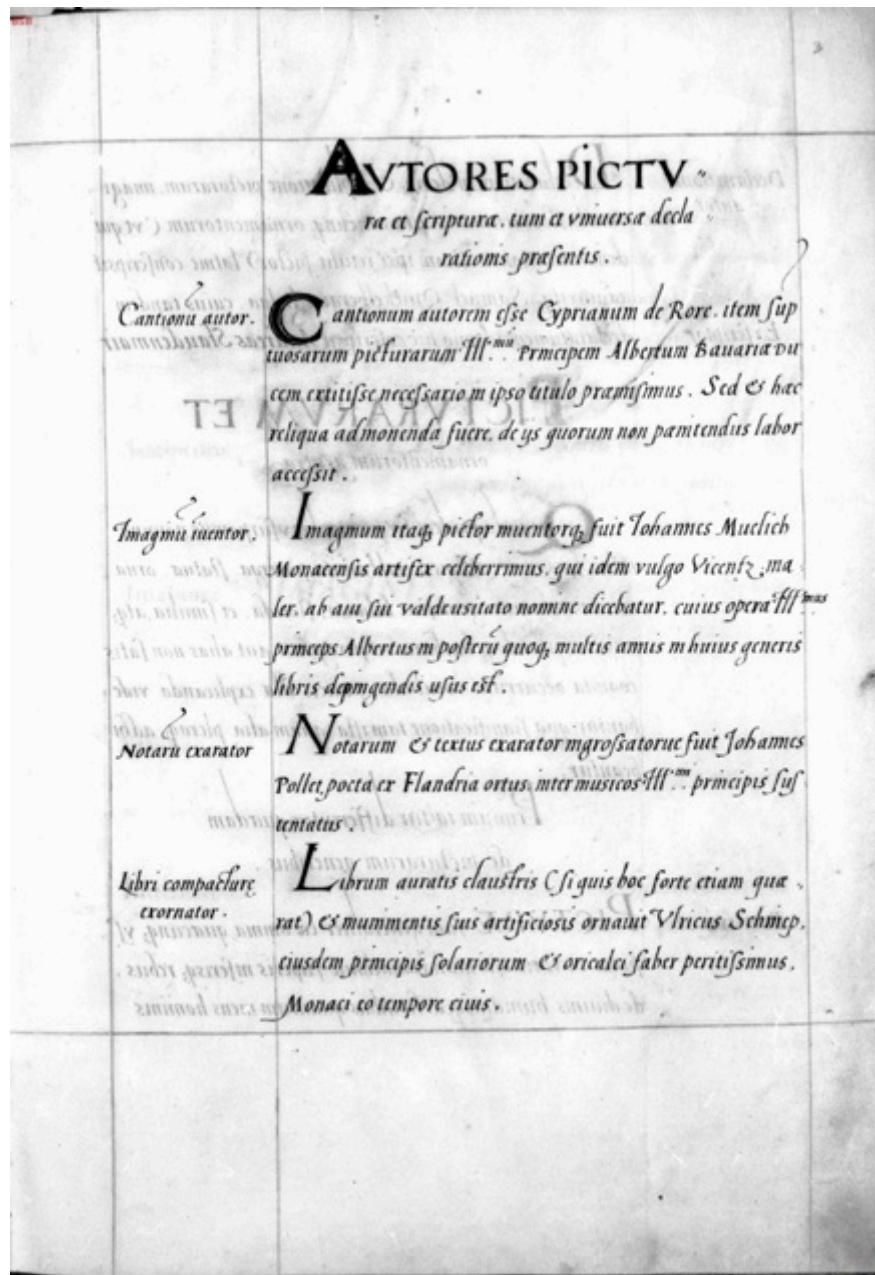 AVTORES PICTV
ræ et scripturæ, tum et vniuersæ decla
rationis præsentis.
Cantionū autor.
Cantionum autorem esse Cyprianum de Rore, item sup
tuosarum picturarum Ill.mū Principem Albertum Bauariæ Du
cem extitisse necessario in ipso titulo præmisimus. Sed & hæc
reliqua admonenda fuere, de ijs quorum non pænitendus labor
accessit.
Imaginū inuentor.
Imaginum itaq; pictor inuentorq; fuit Johannes Muelich
Monacensis artifex celeberrimus, qui idem vulgo Vicentz ma
ler, ab aui sui valde usitato nomine dicebatur, cuius opera Ill.mus
princeps Albertus in posterū quoq; multis annis in huius generis
libris depingendis usus est.
Notarū exarator
Notarum & textus exarator ingrossatorue fuit Johannes
Pollet, poeta ex Flandria ortus, inter musicos Ill.mi principis sus
tentatus.
Libri compacturę
exornator.
Librum auratis claustris (si quis hoc forte etiam quæ
rat) & munimentis suis artificiosis ornauit Vlricus Schniep,
eiusdem principis solariorum & oricalci faber peritissimus,
Monaci eo tempore ciuis.